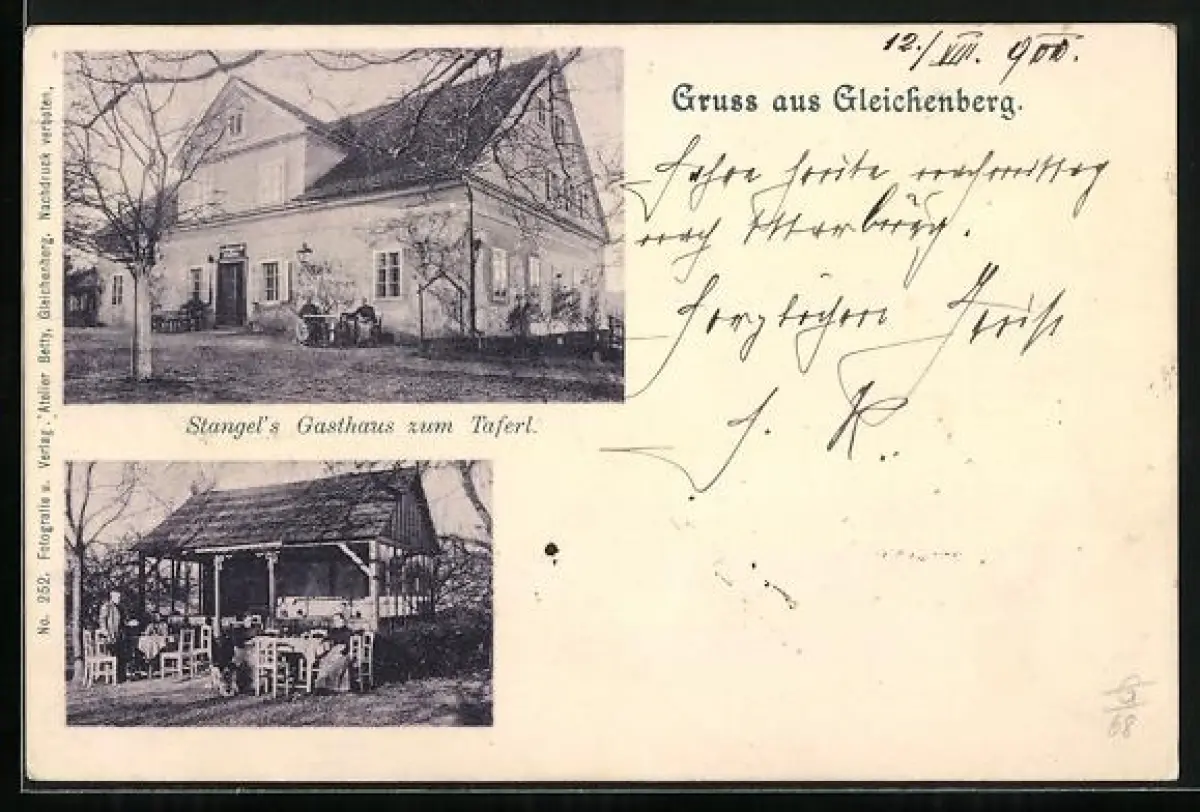 12./VIII. 900.
Gruss aus Gleichenberg.
Fahre heute nachmittag
nach Marburg.
Herzlichen Gruß
R.
Stangel's Gasthaus zum Taferl.
No. 252. Fotografie u. Verlag „Atelier Betty, Gleichenberg. Nachdruck verboten.
68